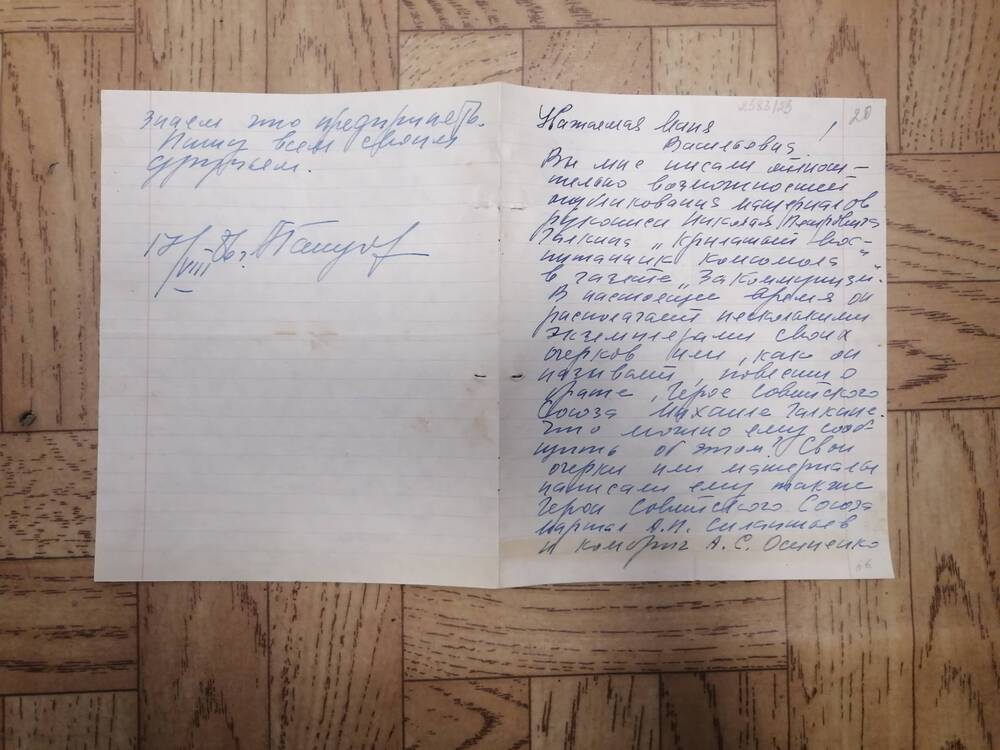 знаем что предпринеть.
Пишу всем своим
друзьям.
17/VIII-86г.
2583/23
20
Уважаемая Майя
Васильевна!
Вы мне писали относи-
тельно возможностей
опубликования материалов
рукописи Николая Петровича
Галкина „Крылатый вос-
питанник комсомола"
в газете „За коммунизм".
В настоящее время он
располагает несколькими
экземплярами своих
очерков или, как он
называет, повестью о
брате, Герое Советского
Союза Михаиле Галкине.
Что можно ему сооб-
щить об этом? Свои
очерки или материалы
написали ему также
Герои Советского Союза
маршал А.П. Силантьев
и комбриг А.С. Осипенко
об.